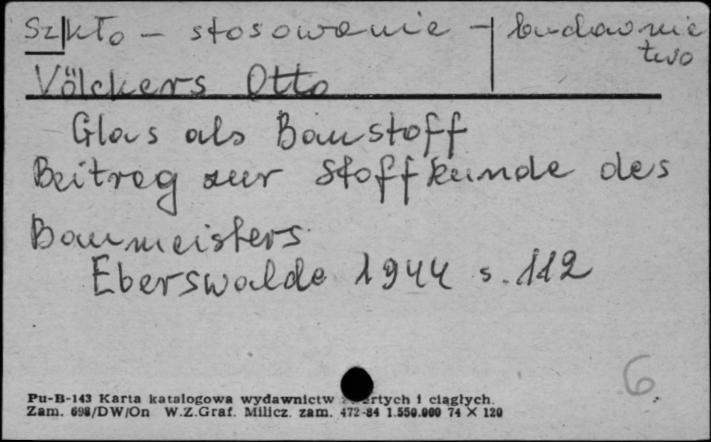 Szkło – stosowanie – budownic
two
Völckers Otto
Glas als Baustoff
Beitrag zur Stoffkunde des
Baumeisters
Eberswalde 1944 s. 112
6
Pu-B-143 Karta katalogowa wydawnictw ciągłych.
Zam. 698/DW/On W.Z.Graf. Milicz. zam. 472-84 1.550.000 74 × 120